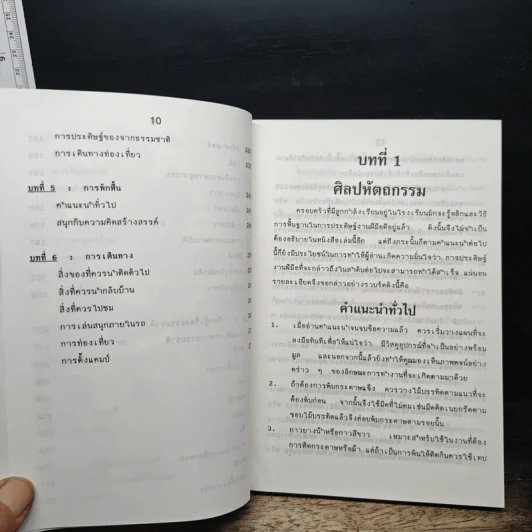 10
การประดิษฐ์ของจากธรรมชาติ
การเดินทางท่องเที่ยว
บทที่ 5 : การพักฟื้น
คำแนะนำทั่วไป
สนุกกับความคิดสร้างสรรค์
บทที่ 6 : การเดินทาง
สิ่งของที่ควรนำติดตัวไป
สิ่งที่ควรนำกลับบ้าน
สิ่งที่ควรไปชม
การเล่นสนุกภายในรถ
การท่องเที่ยว
การตั้งแคมป์
บทที่ 1
ศิลปหัตถกรรม
ครอบครัวที่มีลูกกำลังเรียนอยู่ในโรงเรียนมักจะรู้หลักและวิธี
การพื้นฐานในการประดิษฐ์งานฝีมือดีอยู่แล้ว ดังนั้นจึงไม่จำเป็น
ต้องอธิบายในหนังสือเล่มนี้อีก แต่ถึงกระนั้นก็ตามคำแนะนำต่อไป
นี้ก็ยังมีประโยชน์ในการทำให้ผู้อ่านเกิดความมั่นใจว่า การประดิษฐ์
งานฝีมือที่จะกล่าวถึงในลำดับต่อไปจะสามารถทำได้สำเร็จ แน่นอน
รายละเอียดจึงขอกล่าวอย่างรวบรัดดังนี้คือ
คำแนะนำทั่วไป
1. เมื่ออ่านคำแนะนำจนจบข้อความแล้ว ควรเริ่มวางแผนที่จะ
ลงมือทันทีเพื่อให้แน่ใจว่า มีวัสดุอุปกรณ์ที่จำเป็นอย่างพร้อม
มูล และนอกจากนี้แล้วยังทำให้คุณมองเห็นภาพพจน์อย่าง
คร่าว ๆ ของลักษณะการทำงานที่จะเกิดตามมาด้วย
2. ถ้าต้องการพับกระดาษแข็ง ควรวางไม้บรรทัดตามแนวที่จะ
ต้องพับก่อน จากนั้นจึงใช้มีดที่ไม่คมเช่นมีดตัดเนยกรีดตาม
ขอบไม้บรรทัดแล้วจึงค่อยพับกระดาษตามรอยนั้น
3. กาวยางน้ำหรือกาวสีขาว เหมาะสำหรับใช้ในงานที่ต้อง
การติดกระดาษหรือผ้า แต่ถ้าเป็นการพับให้ติดกันควรใช้เทป